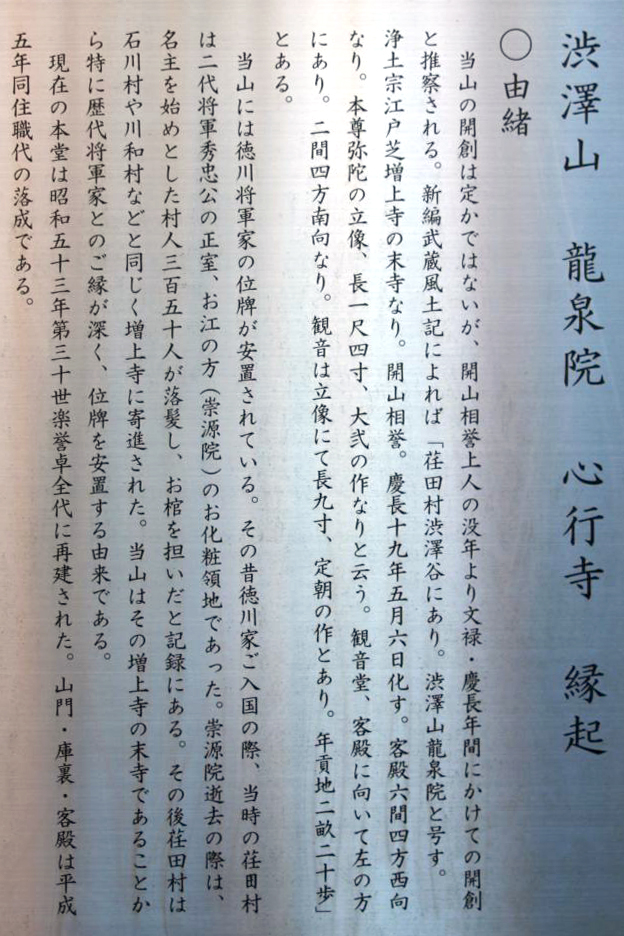 渋澤山　龍泉院　心行寺　縁起
〇由緒
当山の開創は定かではないが、開山相誉上人の没年より文禄・慶長年間にかけての開創
と推察される。新編武蔵風土記によれば「荏田村渋澤谷にあり。渋澤山龍泉院と号す。
浄土宗江戸芝増上寺の末寺なり。開山相誉。慶長十九年五月六日化す。客殿六間四方西向
なり。本尊弥陀の立像、長一尺四寸、大弐の作なりと云う。観音堂、客殿に向いて左の方
にあり。二間四方南向なり。観音は立像にて長九寸、定朝の作とあり。年貢地二畝二十歩」
とある。
当山には徳川将軍家の位牌が安置されている。その昔徳川家ご入国の際、当時の荏田村
は二代将軍秀忠公の正室、お江の方（崇源院）のお化粧領地であった。崇源院逝去の際は、
名主を始めとした村人三百五十人が落髪し、お棺を担いだと記録にある。その後荏田村は
石川村や川和村などと同じく増上寺に寄進された。当山はその増上寺の末寺であることか
ら特に歴代将軍家とのご縁が深く、位牌を安置する由来である。
現在の本堂は昭和五十三年第三十世楽誉卓全代に再建された。山門・庫裏・客殿は平成
五年同住職代の落成である。